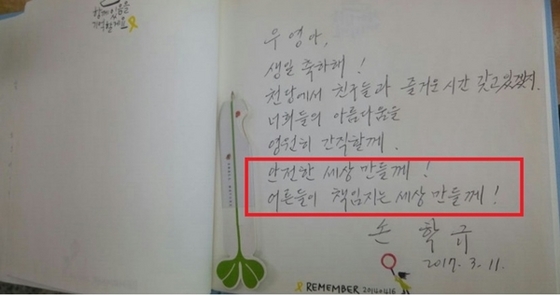 함께 있음을
기억할게요
우영아,
생일 축하해!
천당에서 친구들과 즐거운 시간 갖고 있겠지.
너희들의 아름다움을
영원히 간직할께.
안전한 세상 만들께!
어른들이 책임지는 세상 만들께!
손 학 규
2017. 3. 11.
REMEMBER 2014.04.16